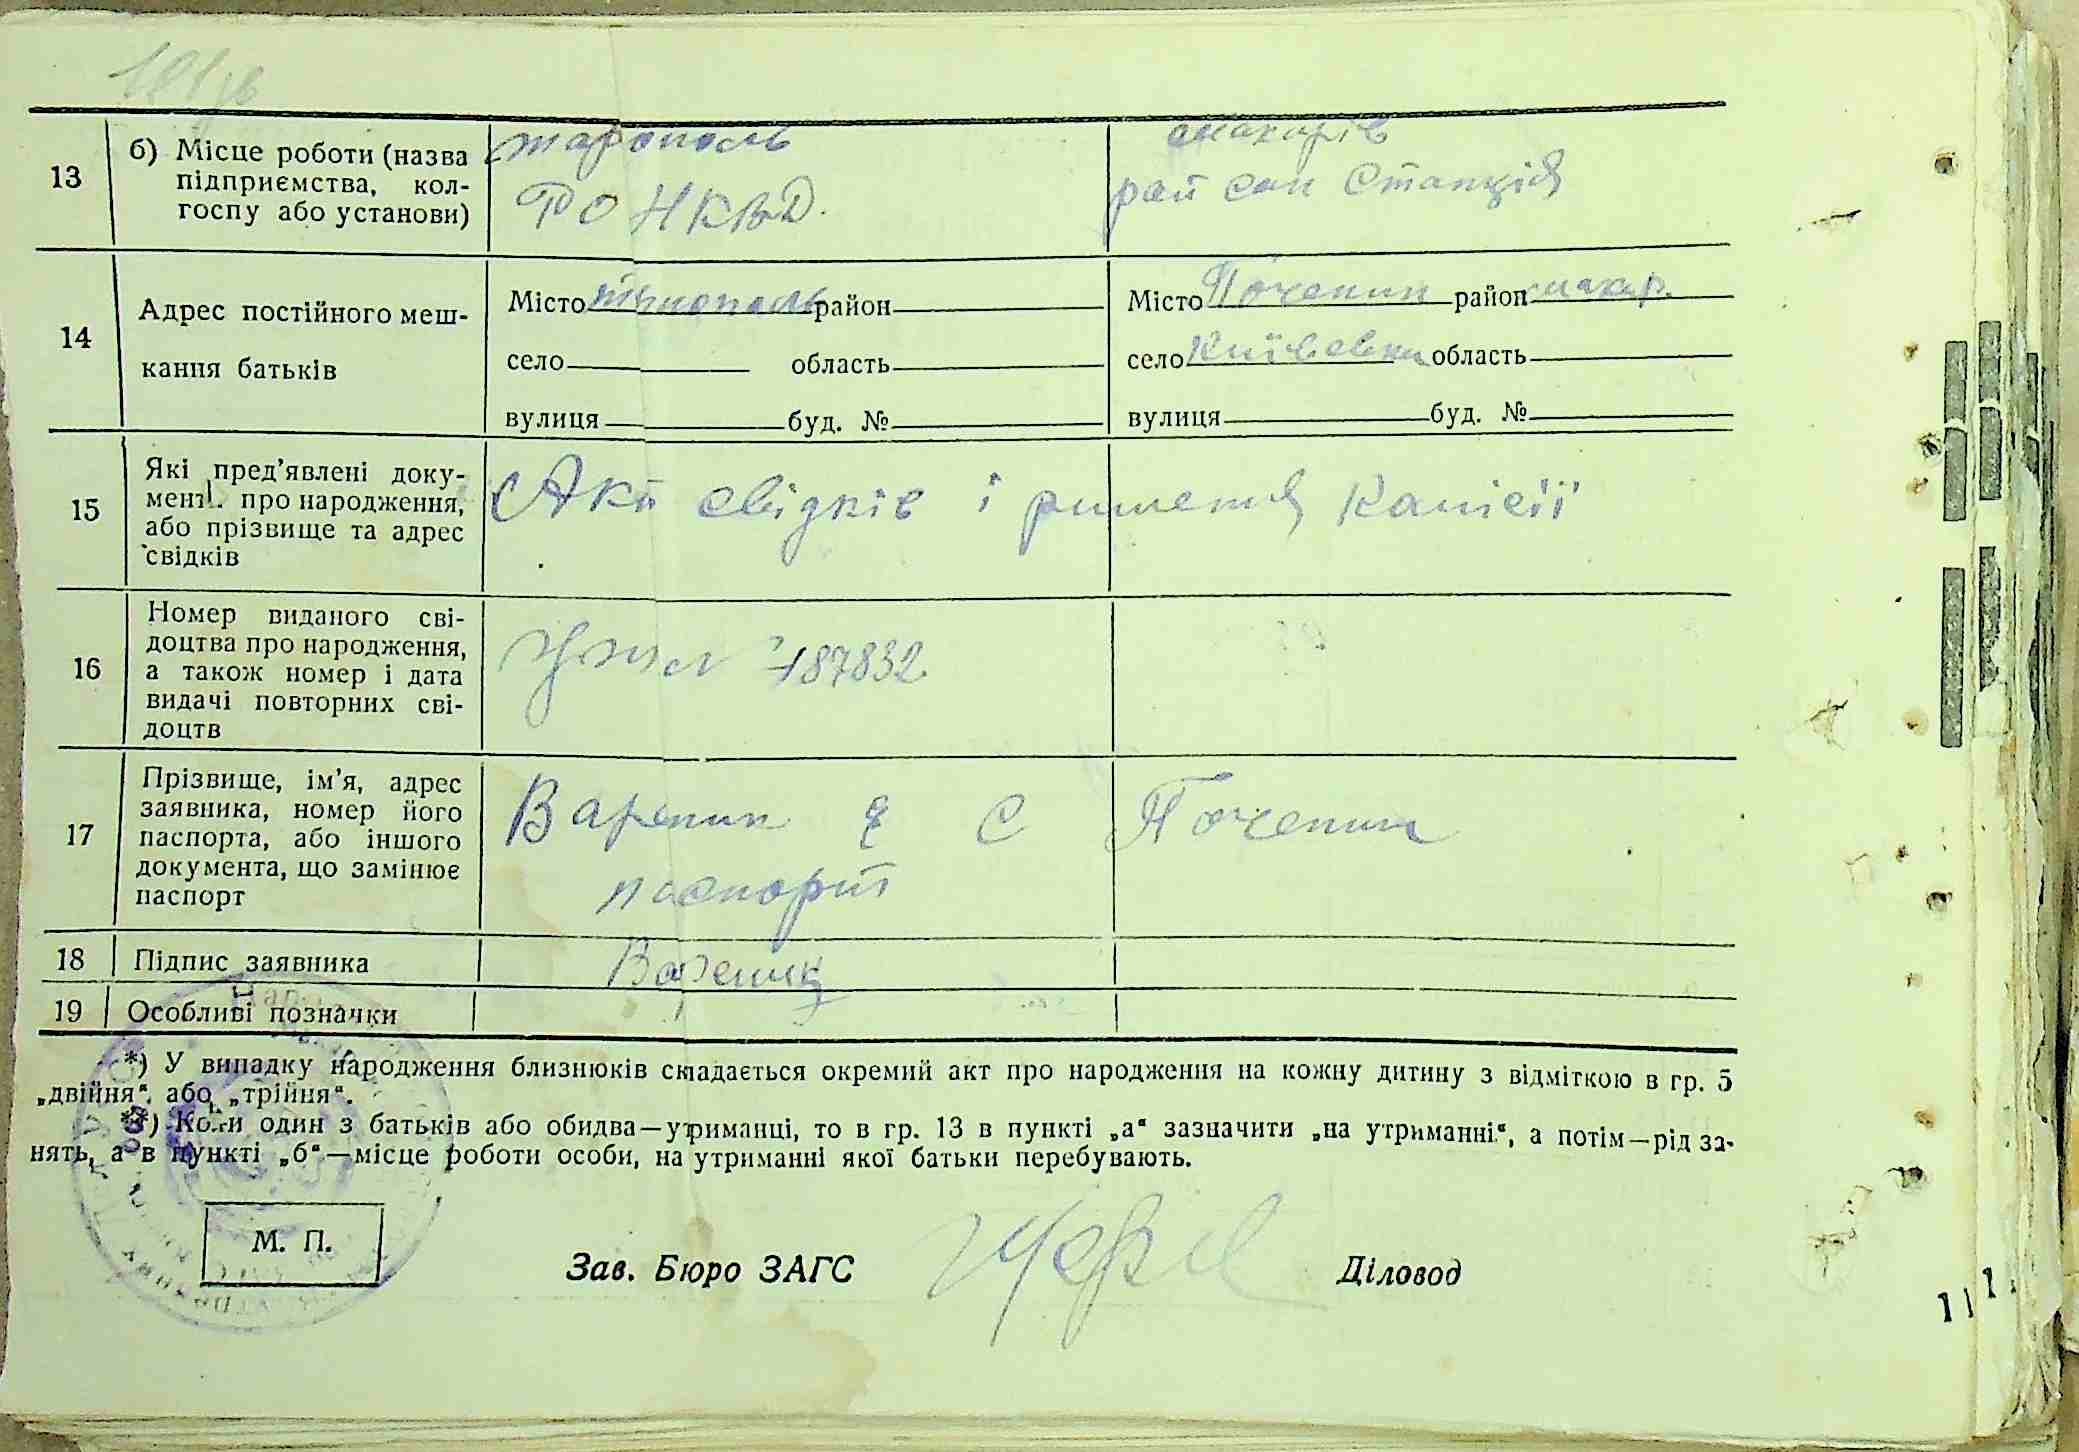 13
б) Місце роботи (назва
підприємства, кол-
госпу або установи)
РО НКВД.
макарів
рай сан Станція
14
Адрес постійного меш-
кання батьків
Місто район
село область
вулиця буд. №
Місто Почепин район макар.
село Київсвки область
вулиця буд. №
15
Які пред’явлені доку-
менті. про народження,
або прізвище та адрес
свідків
Акт свідків і
16
Номер виданого сві-
доцтва про народження,
а також номер і дата
видачі повторних сві-
доцтв
187832
17
Прізвище, ім’я, адрес
заявника, номер його
паспорта, або іншого
документа, що замінює
паспорт
Вареник Я С Почепин
паспорт
18
Підпис заявника
Вареник
19
Особливі позначки
*) У випадку народження близнюків складається окремий акт про народження на кожну дитину з відміткою в гр. 5
„двійня“ або „трійня“.
**) Коли один з батьків або обидва—утриманці, то в гр. 13 в пункті „а“ зазначити „на утриманні“, а потім—рід за-
нять, а в пункті „б“—місце роботи особи, на утриманні якої батьки перебувають.
М. П.
Зав. Бюро ЗАГС
Діловод